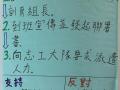 訓育組長。
2.到班宣傳並發起聯署書。
3.向志工大隊要求派遣人力。
支持 反對